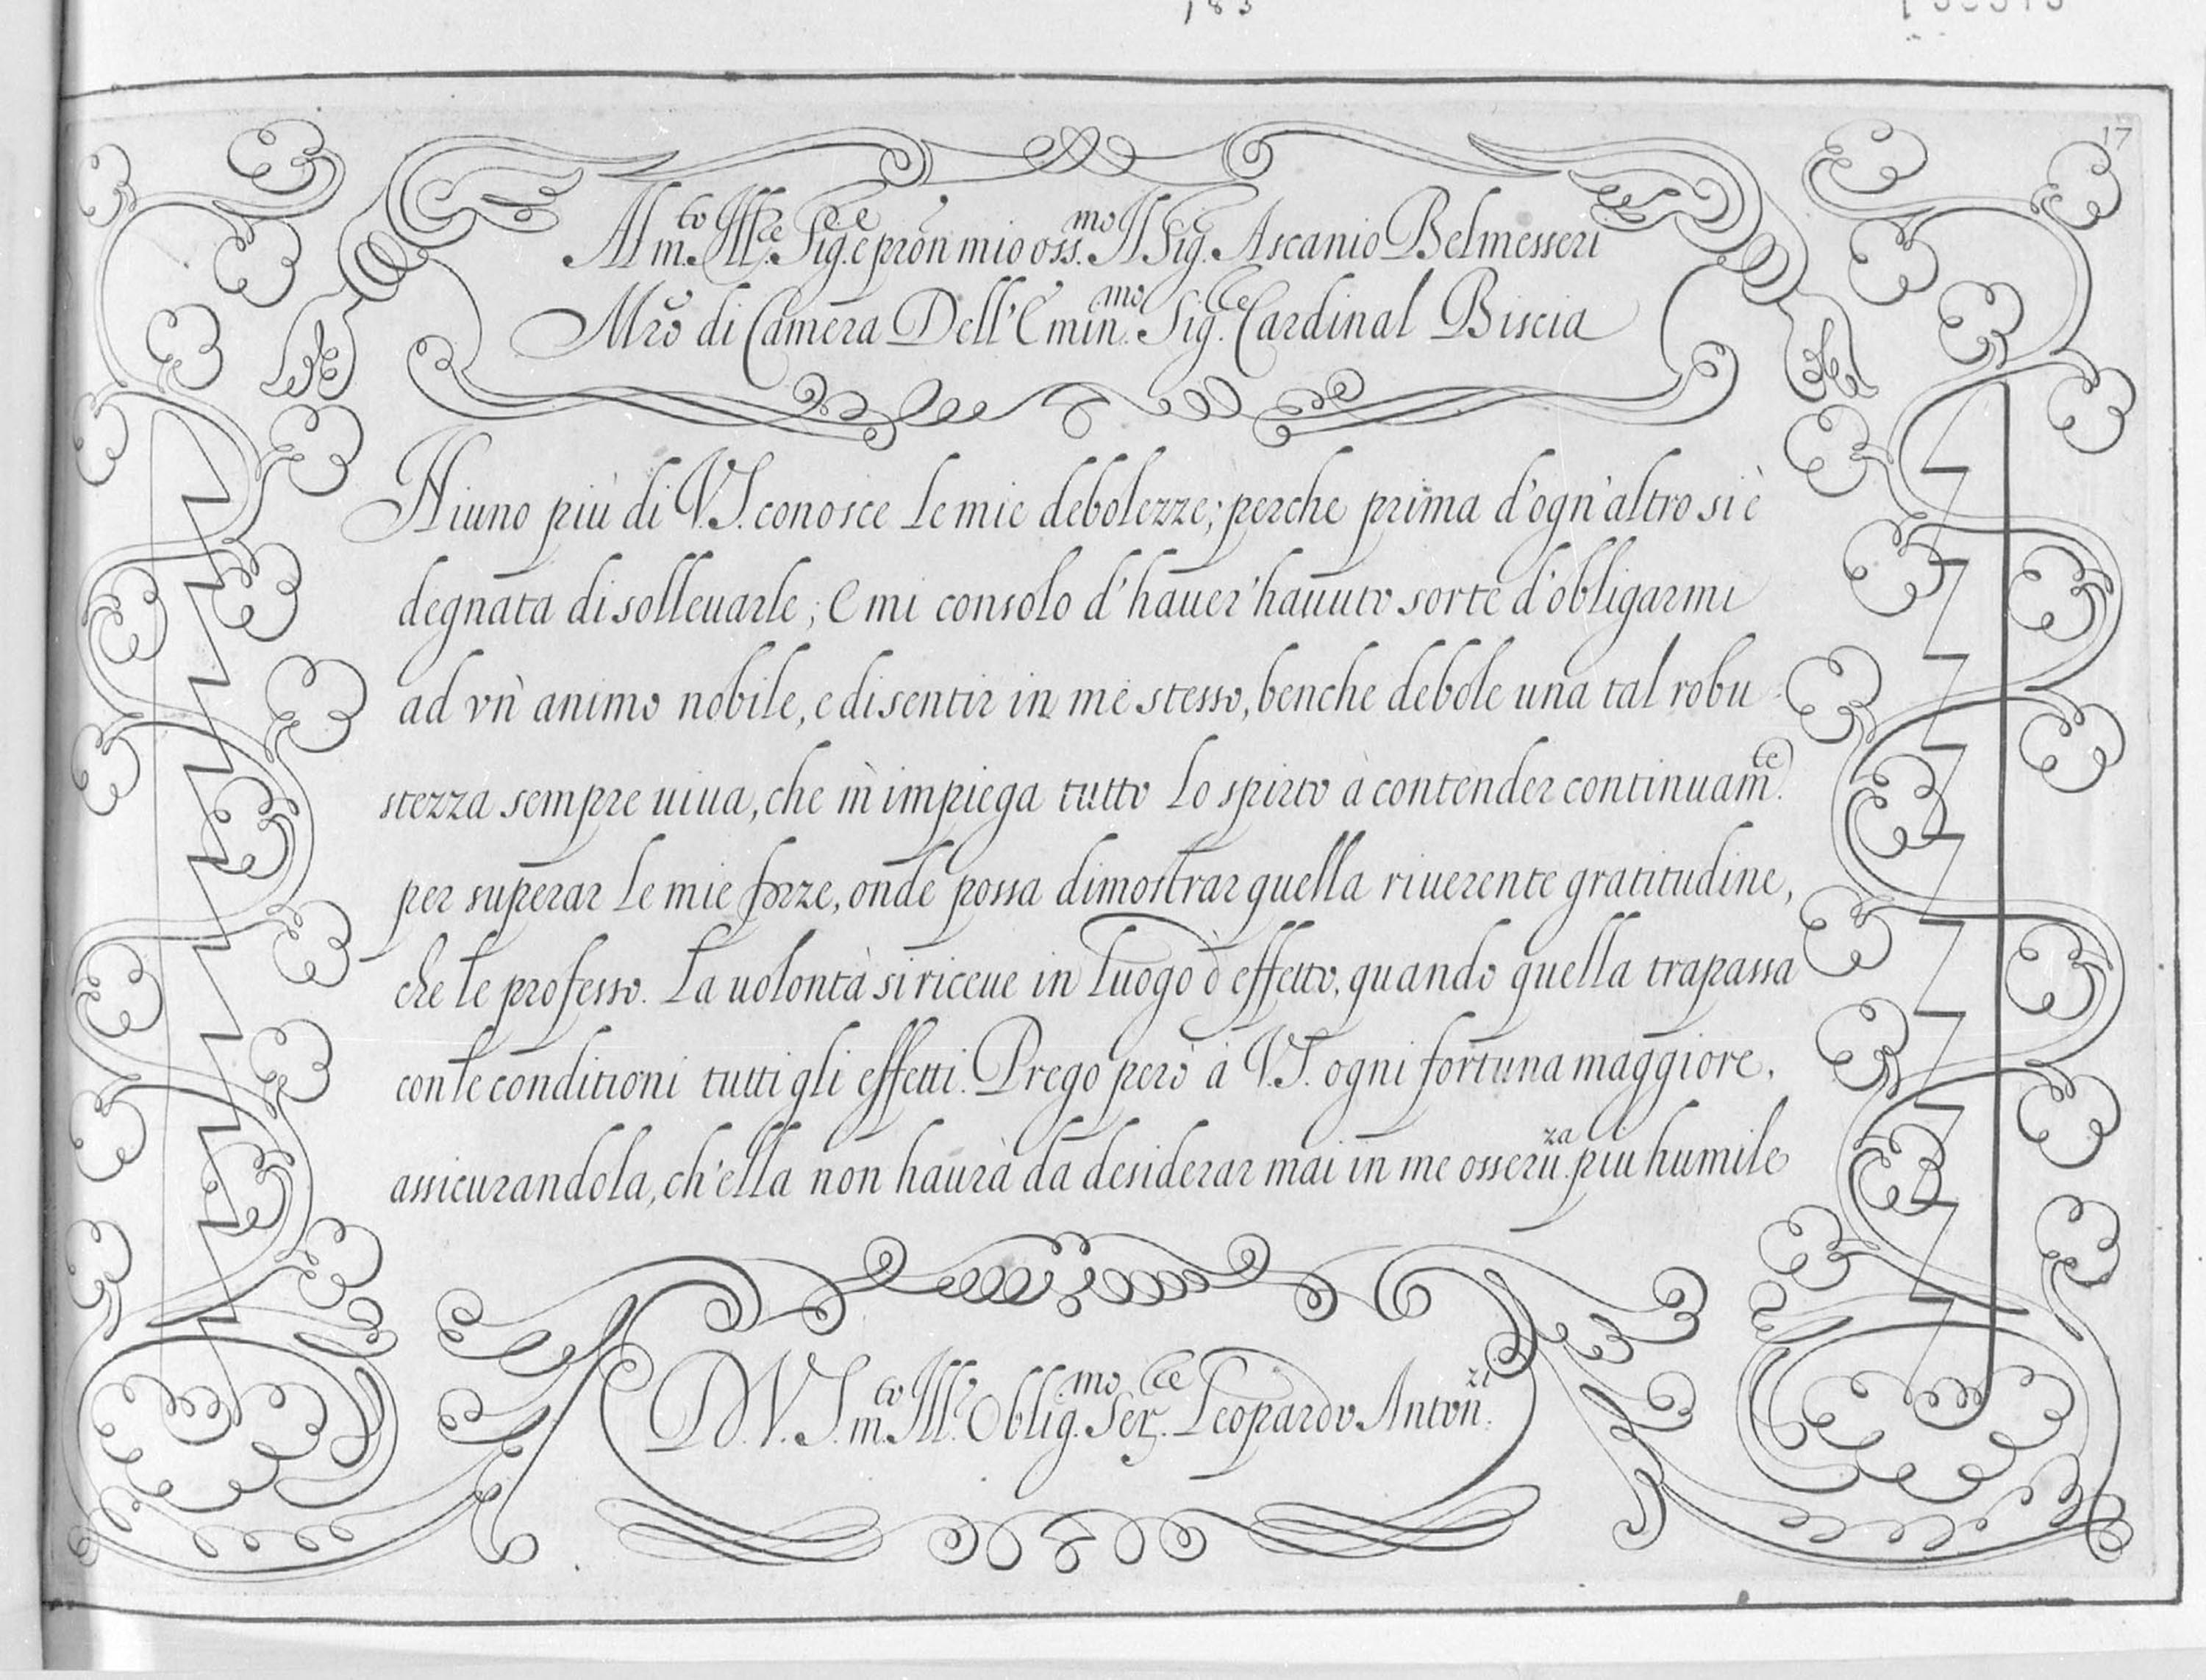 17
Al m.to Ill.re Sig.re e pron mio oss.mo Il Sig.r Ascanio Belmesseri
Mrõ di Camera Dell' Emin.mo Sig.re Cardinal Biscia
Niuno più di V.S. conosce le mie debolezze; perche prima d'ogn'altro si è
degnata di solleuarle; E mi consolo d'hauer'hauuto sorte d'obligarmi
ad vn' animo nobile, e di sentir in me stesso, benche debole una tal robu
stezza sempre uiua, che m'impiega tutto lo spirto à contender continuam.te
per superar le mie forze, onde possa dimostrar quella riuerente gratitudine,
che le professo. La uolontà si riceue in luogo d'effetto, quando quella trapassa
con le conditioni tutti gli effetti. Prego però à V.S. ogni fortuna maggiore,
assicurandola, ch'ella non haurà da desiderar mai in me osseru.za piu humile
D.V.S. m.to Ill.re Oblig.mo Ser.re Leopardo Anton.zi